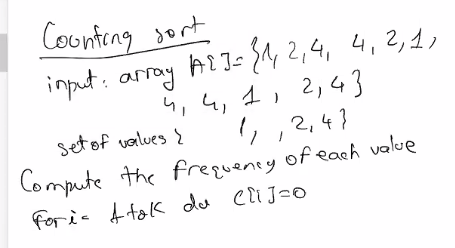 Counting sort
input: array A[]= {1, 2, 4, 4, 2, 1,
4, 4, 1, 2, 4}
set of values { 1, , 2, 4}
Compute the frequency of each value
for i= 1 to K do C[i]=0